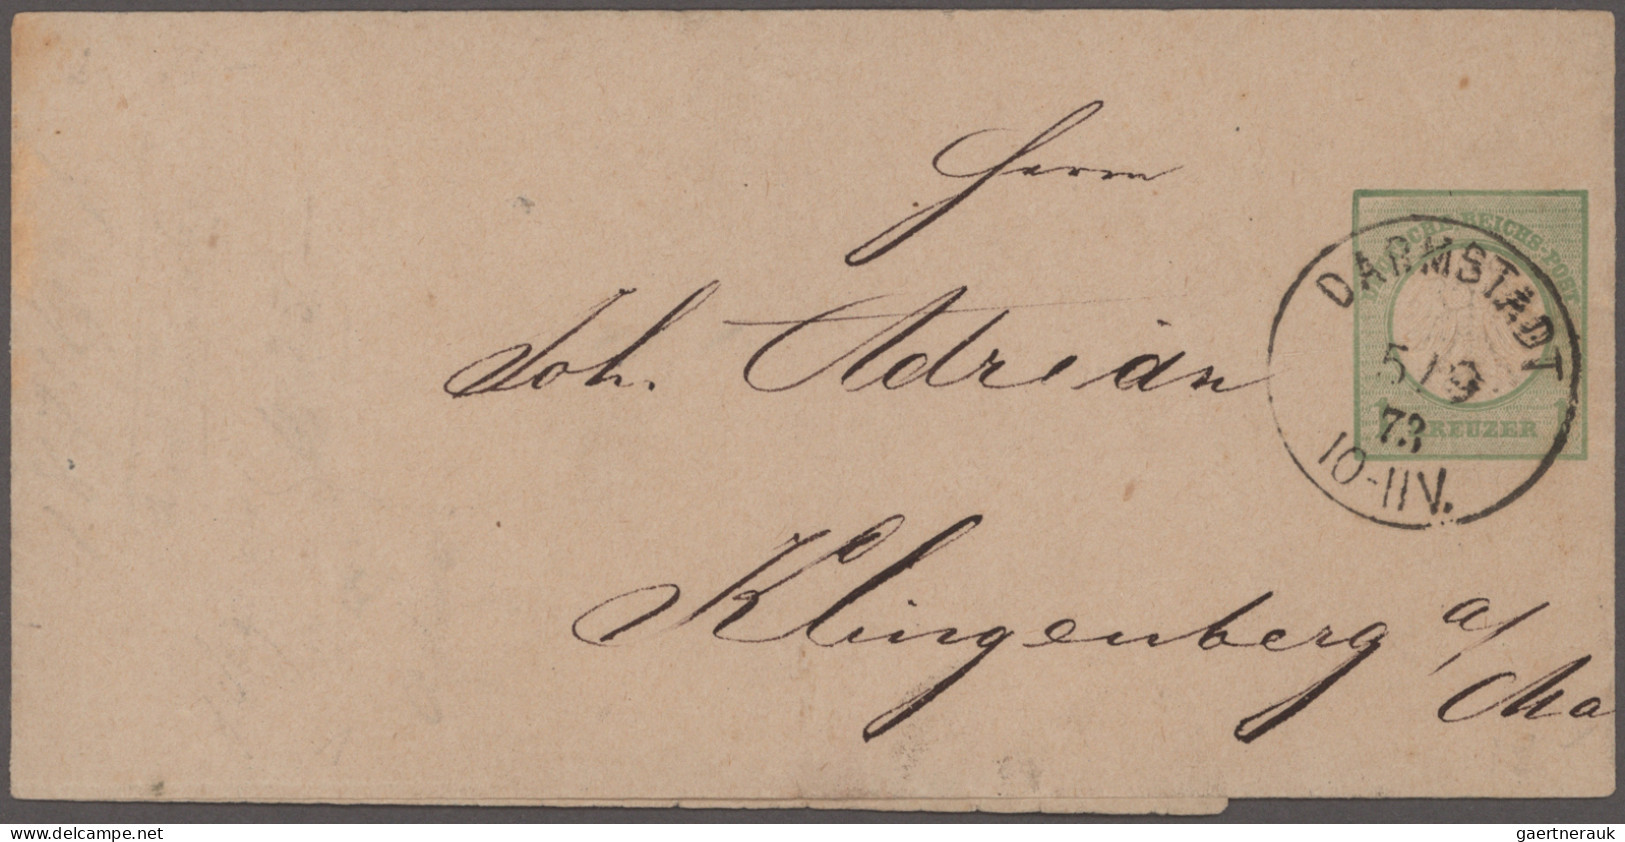 Herrn
Joh. Adrian
Klingenberg a/
Ma
DEUTSCHE REICHS-POST
1 KREUZER 1
DARMSTADT
5 9
73
10-11 V.
www.delcampe.net
gaertnerauk